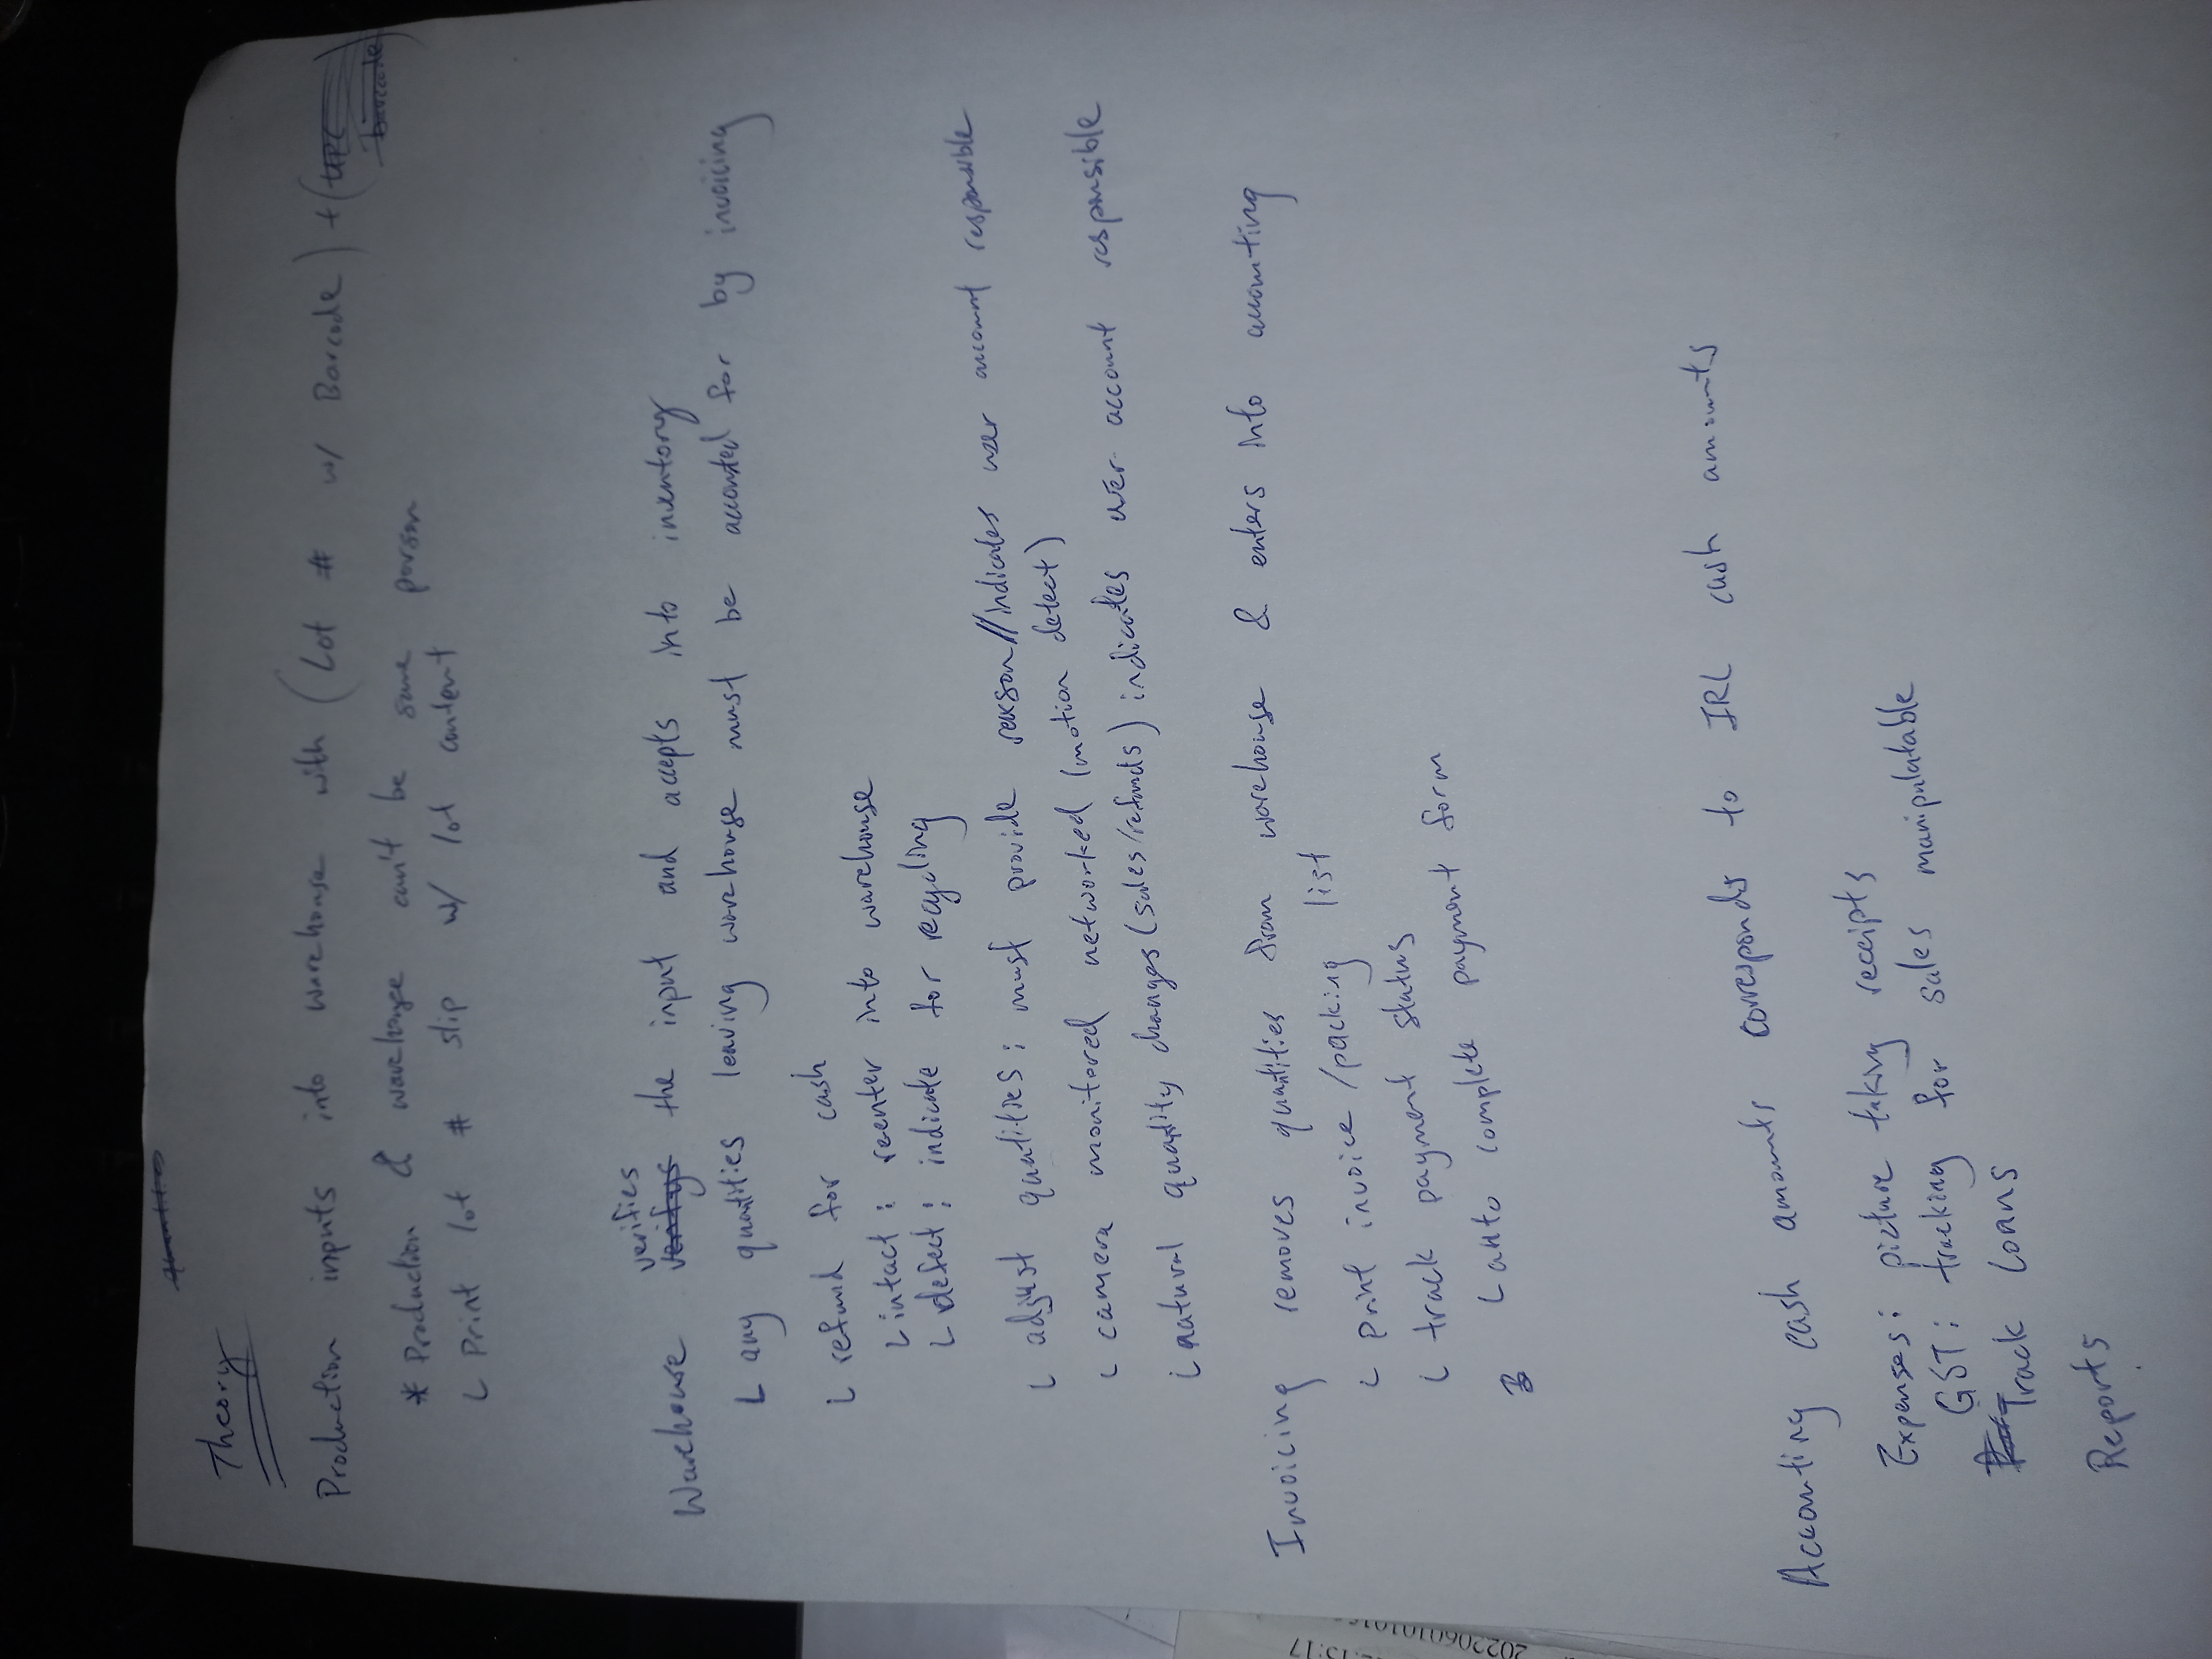 Theory
Production inputs into warehouse with (Lot # w/ Barcode) + (UPC
barcode)
* Production & warehouse can't be same person
L Print lot # slip w/ lot content
verifies
Warehouse verifys the input and accepts into inventory
L any quantities leaving warehouse must be accounted for by invoicing
L refund for cash
L intact : reenter into warehouse
L defect : indicate for recycling
L adjust quatities : must provide reason//indicates user account responsible
L camera monitored networked (motion detect)
L natural quantity changes (sales/refunds) indicates user account responsible
Invoicing removes quantities from warehouse & enters into accounting
L print invoice/packing list
L track payment status
L auto complete payment form
Accounting cash amounts corresponds to IRL cash amounts
Expenses : picture taking receipts
GST : tracking for sales manipulatable
Track Loans
Reports
15:17